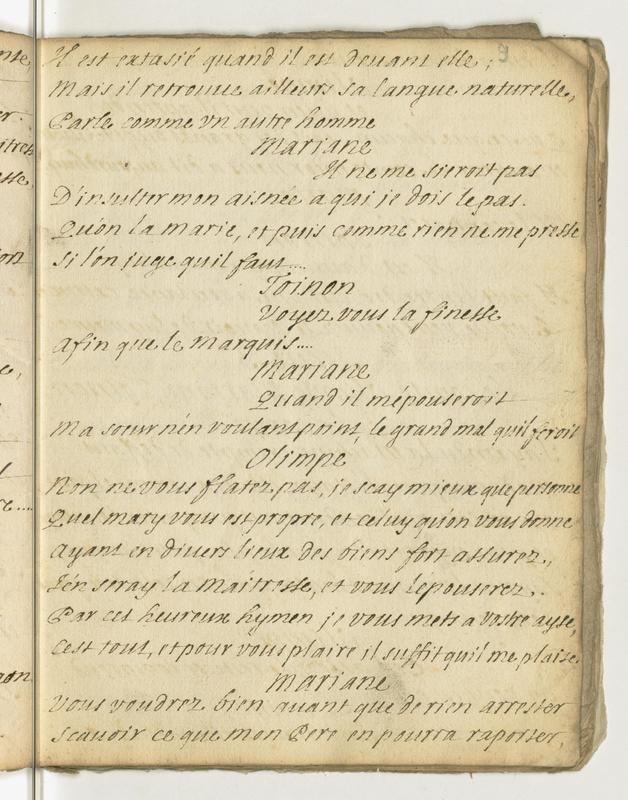 9
Il est extasié quand il est deuant elle;
Mais il retrouue ailleurs sa langue naturelle,
Parle comme vn autre homme
Mariane
Il ne me sieroit pas
D'insulter mon aisnée a qui je dois le pas.
Quon la marie, et puis comme rien ne me presse
Si lón juge quil faut....
Toinon
Voyez vous la finesse
Afin que le Marquis....
Mariane
Quand il mépouseroit
Ma sœur nén voulant point, le grand mal quil feroit
Olimpe
Non ne vous flatez pas, je scay mieux que personne
Quel mary vous est propre, et celuy quón vous donne
Ayant en diuers lieux des biens fort assurez,
Jén seray la Maitresse, et vous lépouserez.
Par cet heureux hymen je vous mets a vostre ayse,
Cest tout, et pour vous plaire il suffit quil me plaise.
Mariane
Vous voudrez bien auant que de rien arrester
Scauoir ce que mon Pere en pourra raporter,